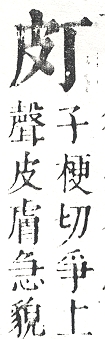 子梗切爭上
聲皮膚急貌